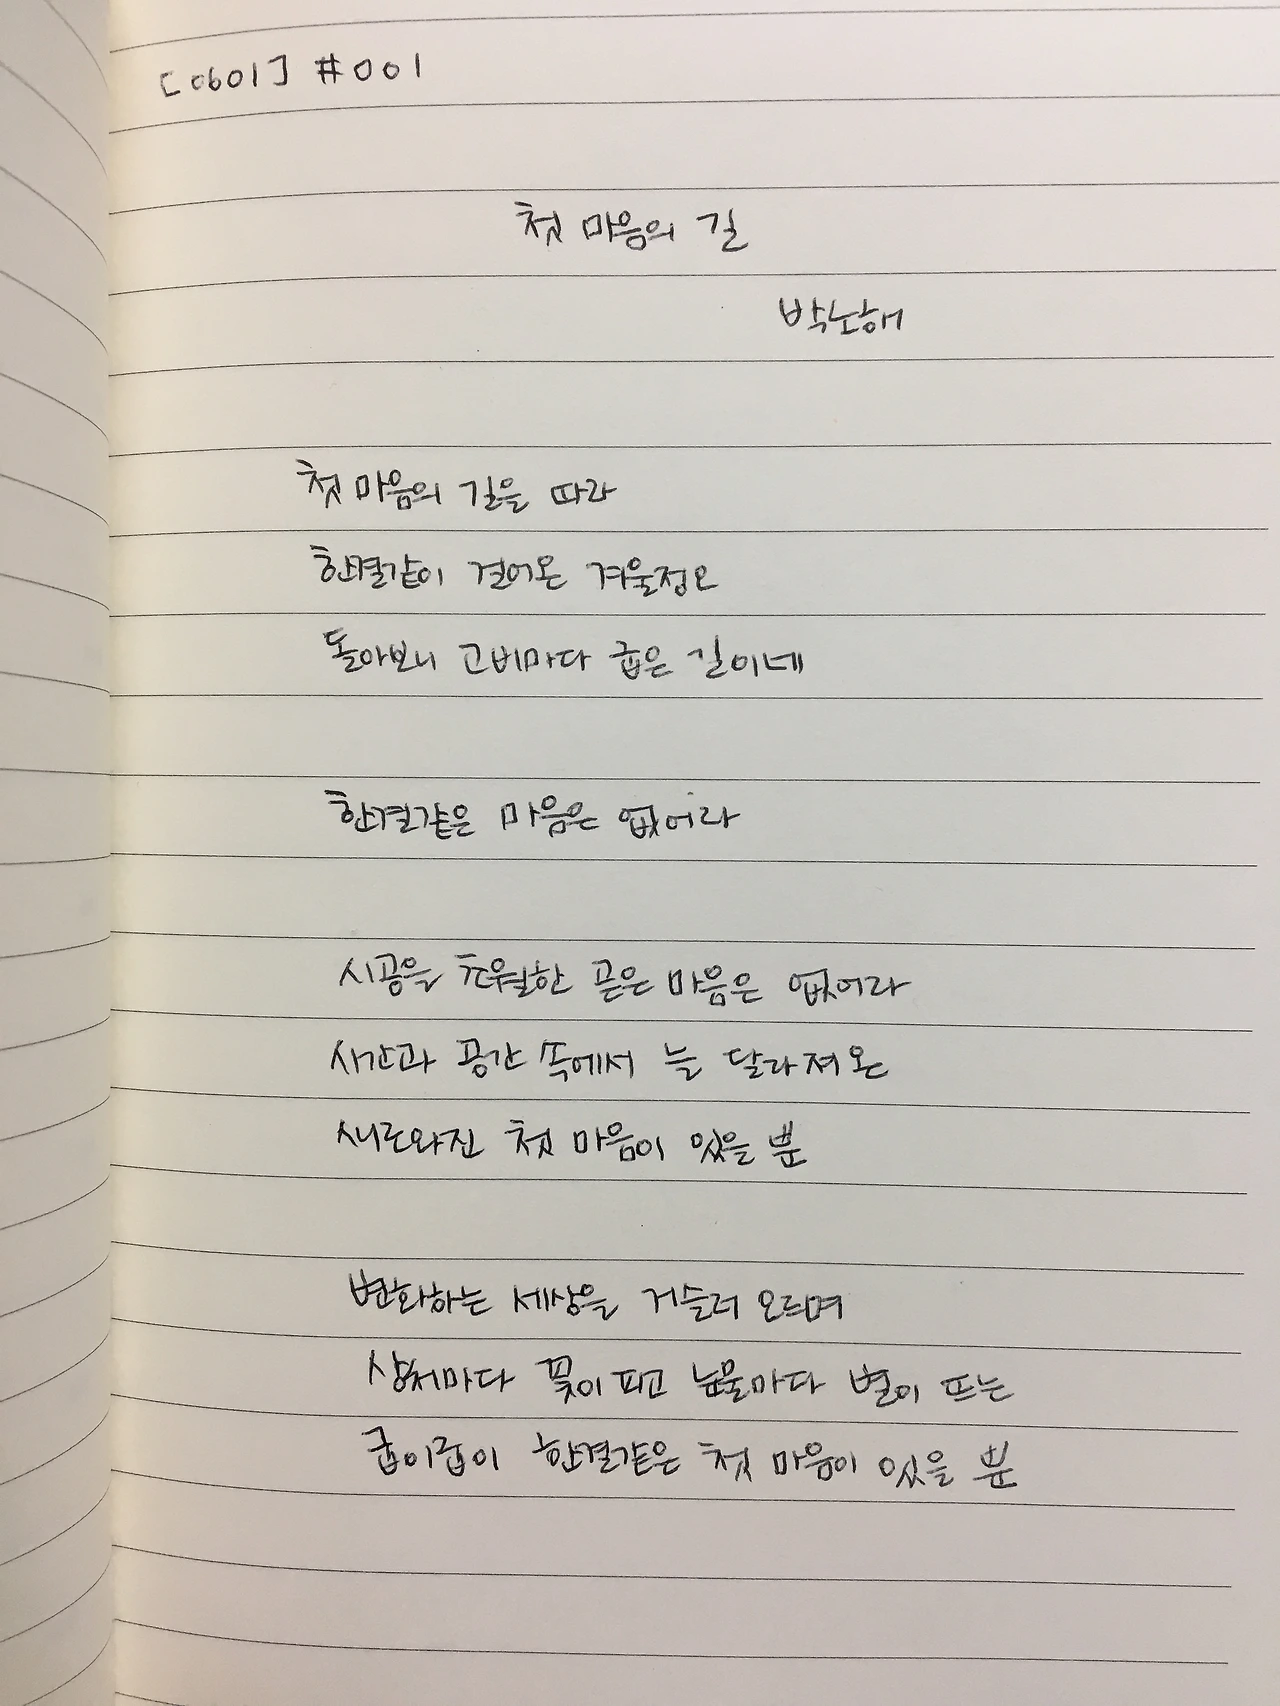 [0601] #001
첫 마음의 길
박노해
첫 마음의 길을 따라
한결같이 걸어온 겨울정오
돌아보니 고비마다 굽은 길이네
한결같은 마음은 없어라
시공을 초월한 곧은 마음은 없어라
시간과 공간 속에서 늘 달라져 온
새로와진 첫 마음이 있을 뿐
변화하는 세상을 거슬러 오르며
상처마다 꽃이 피고 눈물마다 별이 뜨는
굽이굽이 한결같은 첫 마음이 있을 뿐